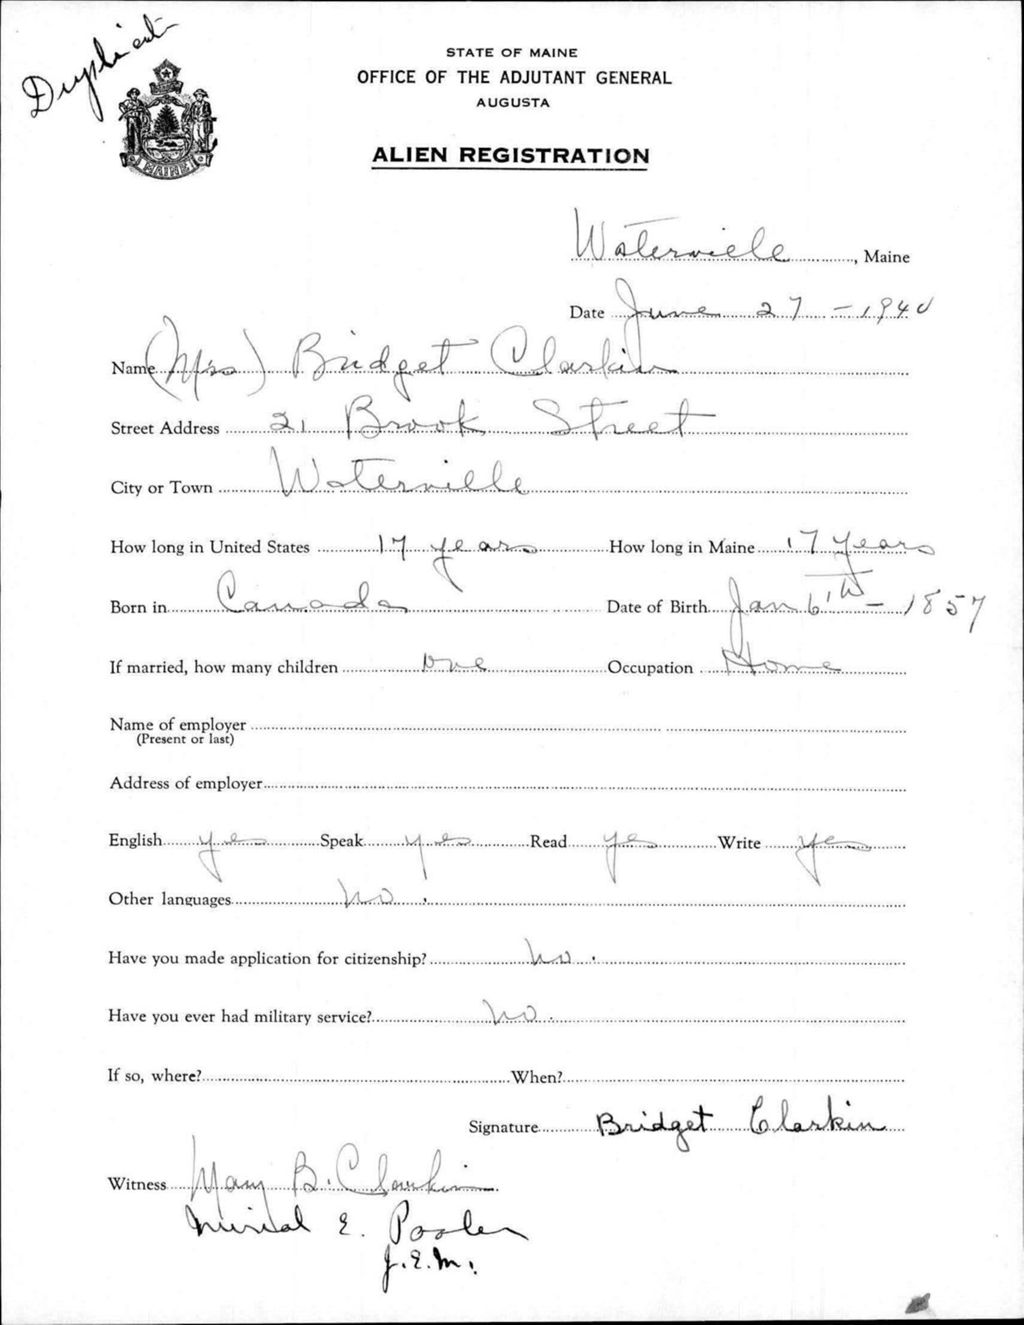 Duplicate
STATE OF MAINE
OFFICE OF THE ADJUTANT GENERAL
AUGUSTA
MAINE
ALIEN REGISTRATION
Waterville, Maine
Date June 27 - 1940
Name (Mrs) Bridget Clarkin
Street Address 21 Brook Street
City or Town Waterville
How long in United States 17 years How long in Maine 17 years
Born in Canada Date of Birth Jan 6th - 1857
If married, how many children one Occupation Home
Name of employer
(Present or last)
Address of employer
English yes Speak yes Read yes Write yes
Other languages no.
Have you made application for citizenship? no.
Have you ever had military service? no.
If so, where? When?
Signature Bridget Clarkin
Witness Mary B. Clarkin
Murial E. Pooler
J.E.M.